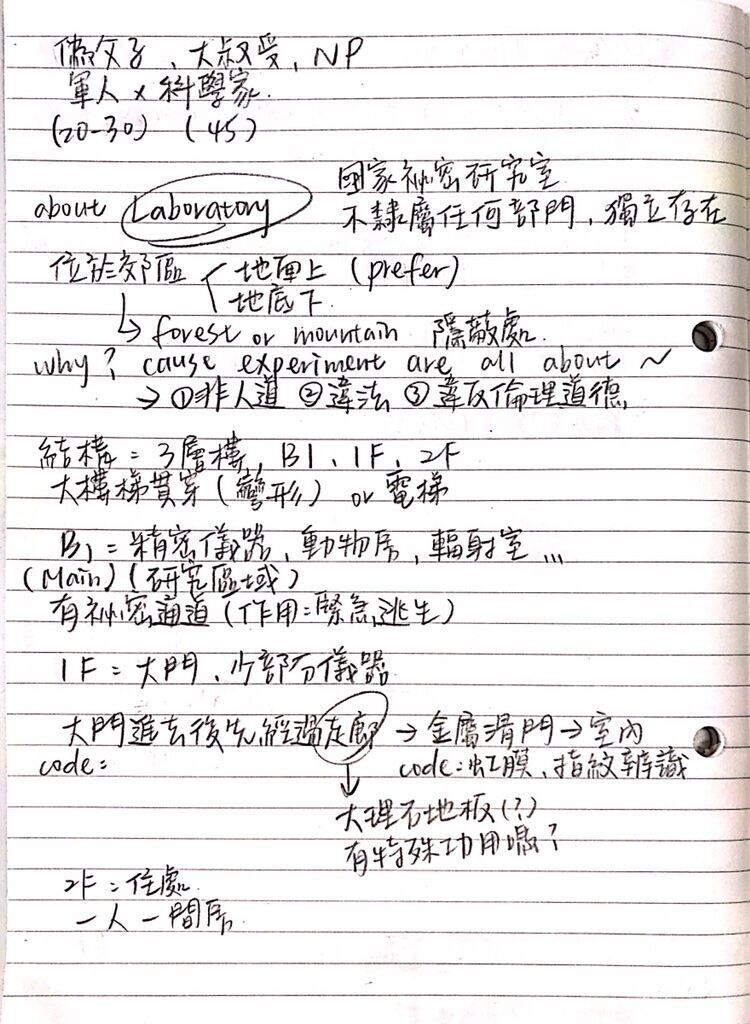 偽父子、大叔受, NP
軍人 x 科學家.
(20-30) (45)
國家祕密研究室
about Laboratory 不隸屬任何部門, 獨立存在
位於郊區 地面上 (prefer)
地底下.
↳ forest or mountain 隱蔽處.
why? cause experiment are all about ~
→ ①非人道 ②違法 ③違反倫理道德.
結構 = 3層樓, B1、1F、2F
大樓梯貫穿 (彎形) or 電梯
B1 = 精密儀器, 動物房, 輻射室...
(Main) (研究區域)
有祕密通道 (作用=緊急逃生)
1F = 大門、少部分儀器
大門進去後先經過走廊 → 金屬滑門 → 室內
code= code=虹膜、指紋辨識
↓
大理石地板(?)
有特殊功用嗎?
2F = 住處.
一人一間房.